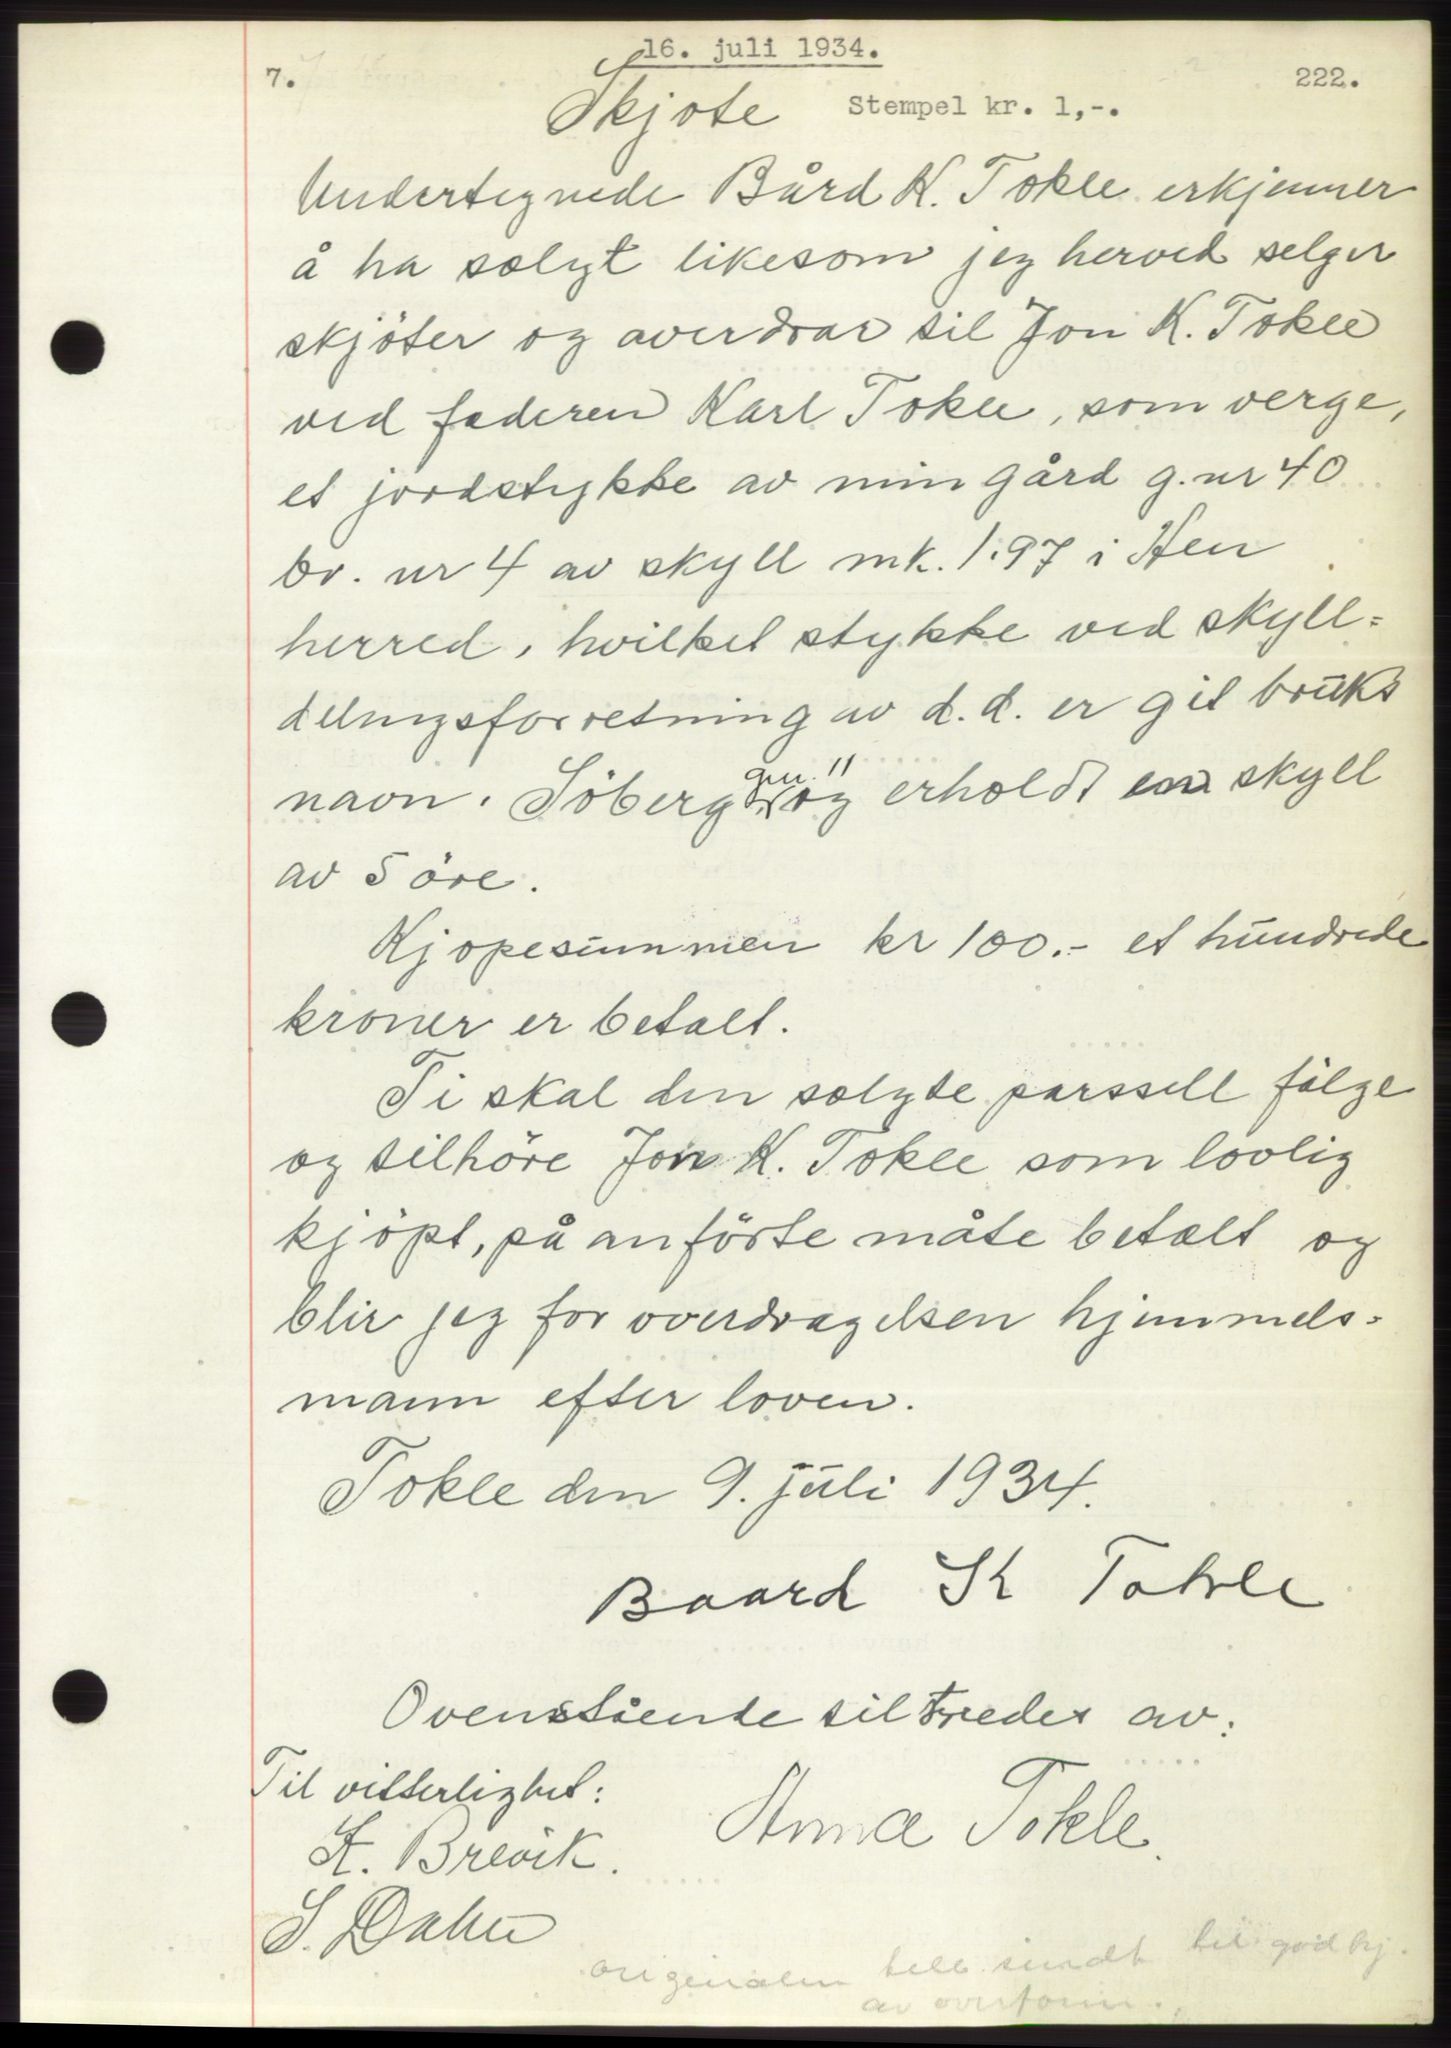 16. juli 1934.
7.
222.
Skjøte Stempel kr. 1,-.
Undertegnede Bård K. Tokle erkjenner
å ha solgt likesom jeg herved selger
skjöter og averdrar til Jon K. Tokle
ved faderen Karl Tokle, som verge,
et jordstykke av min gård g.nr 40
br. nr 4 av skyll mk. 1.97 i Hen
herred, hvilket stykke ved skyll=
delingsforretning av d.d. er git bruks
navn. Söberg og erholdt en skyll
gnr. 11
av 5 öre.
Kjøpesummen kr 100.- et hundrede
kroner er betalt.
Ti skal den solgte parsell fölge
og tilhöre Jon K. Tokle som lovlig
kjöpt, på anförte måte betalt og
blir jeg for overdragelsen hjemmels=
mann efter loven.
Tokle den 9. juli 1934.
Baard K Tokle
Ovenstående tiltredes av:
Til vitterlighet:
Anna Tokle.
K. Brevik.
S. Dahle
originalen tilb. sendt til godkj.
av overform.